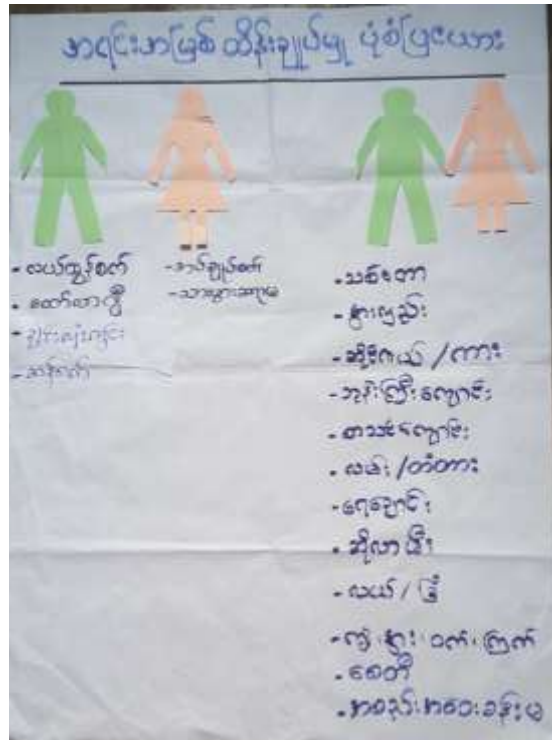 အရင်းအမြစ် ထိန်းချုပ်မှု ပုံစံပြဇယား
- လယ်ထွန်စက်
- ထော်လာဂျီ
- အပ်ချုပ်စက်
- သားဖွားဆရာမ
- သစ်တော
- နွားလှည်း
- ဆိုင်ကယ် / ကား
- ဘုန်းကြီးကျောင်း
- စာသင်ကျောင်း
- လမ်း / တံတား
- ရေချောင်း
- ဆိုလာမီး
- လယ် / ခြံ
- ကျွဲ၊ နွား၊ ဝက်၊ ကြက်
- စေတီ
- အစည်းအဝေးခန်းမ